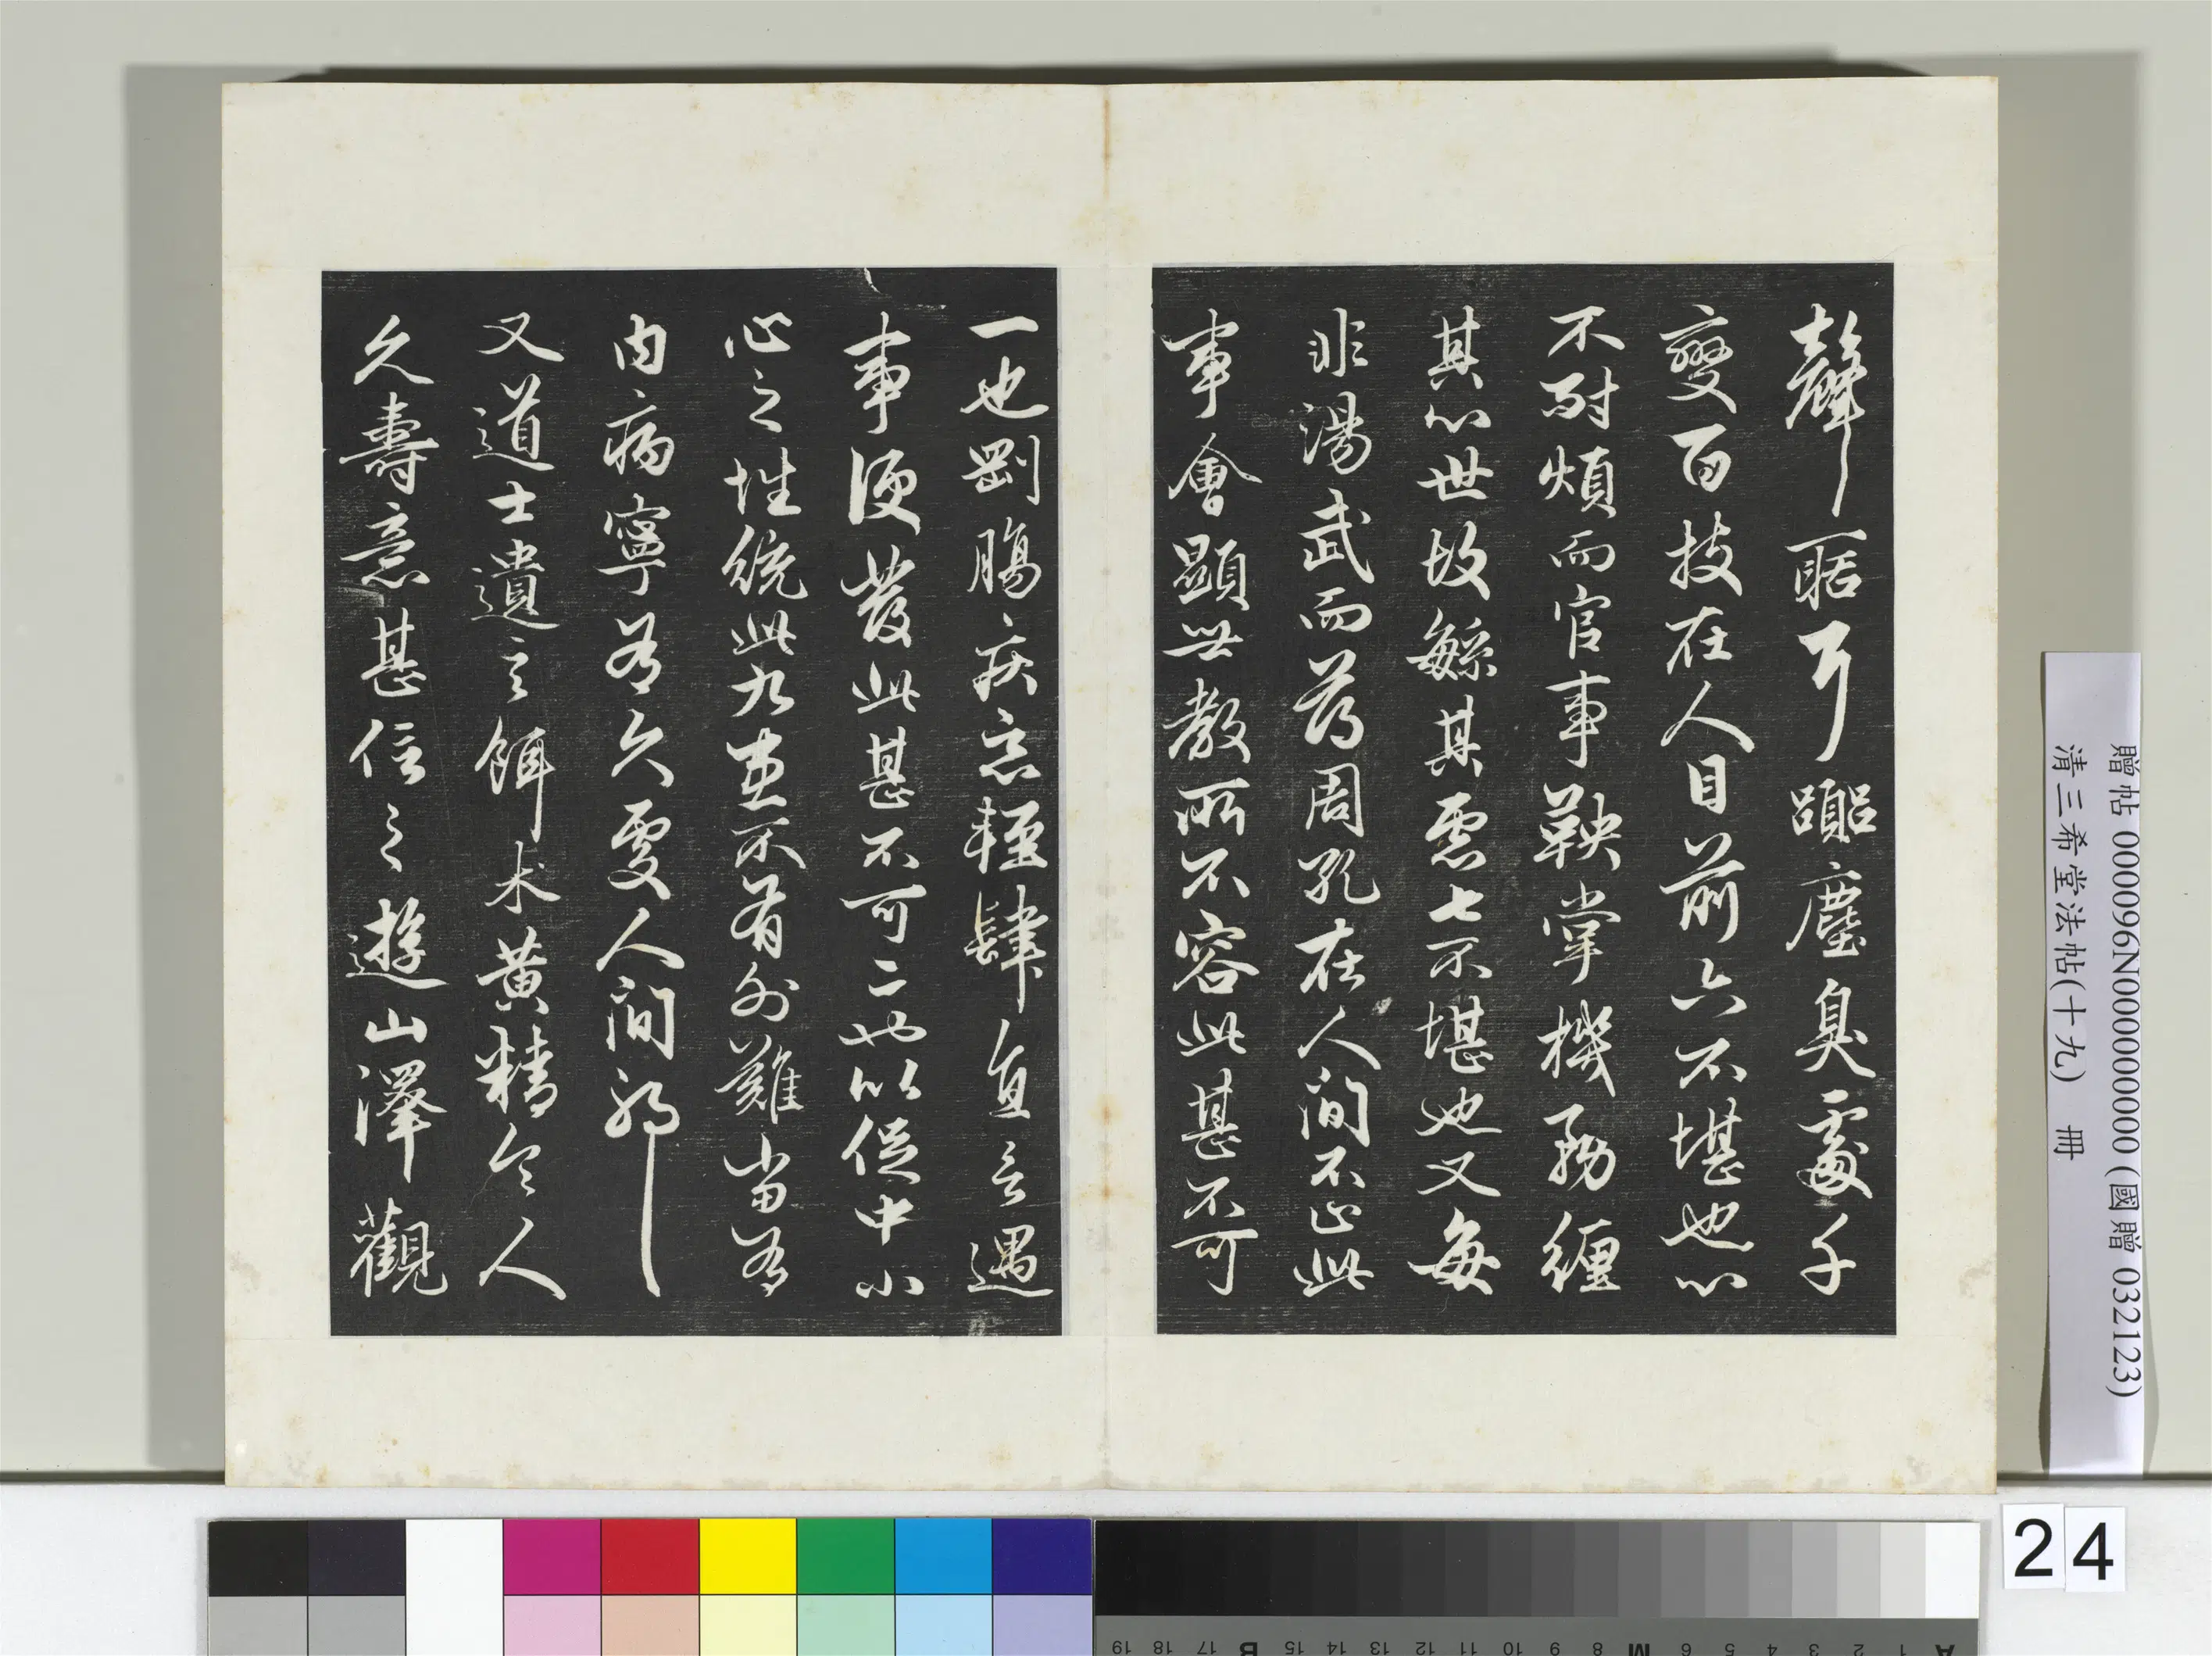 聲聒耳囂塵臭處千
變百技在人目前六不堪也心
不耐煩而官事鞅掌機務纏
其心世故繁其慮七不堪也又每
非湯武而薄周孔在人間不止此
事會顯世教所不容此甚不可
一也剛腸疾惡輕肆直言遇
事便發此甚不可二也以促中小
心之性統此九患不有外難當有
内病寧有久處人間邪
又道士遺言餌术黃精令人
久壽意甚信之遊山澤觀
贈帖 000096N000000000 (國贈 032123)
清三希堂法帖(十九) 冊
24
A 1 2 3 4 5 6 M 8 9 10 11 12 13 14 15 B 17 18 19